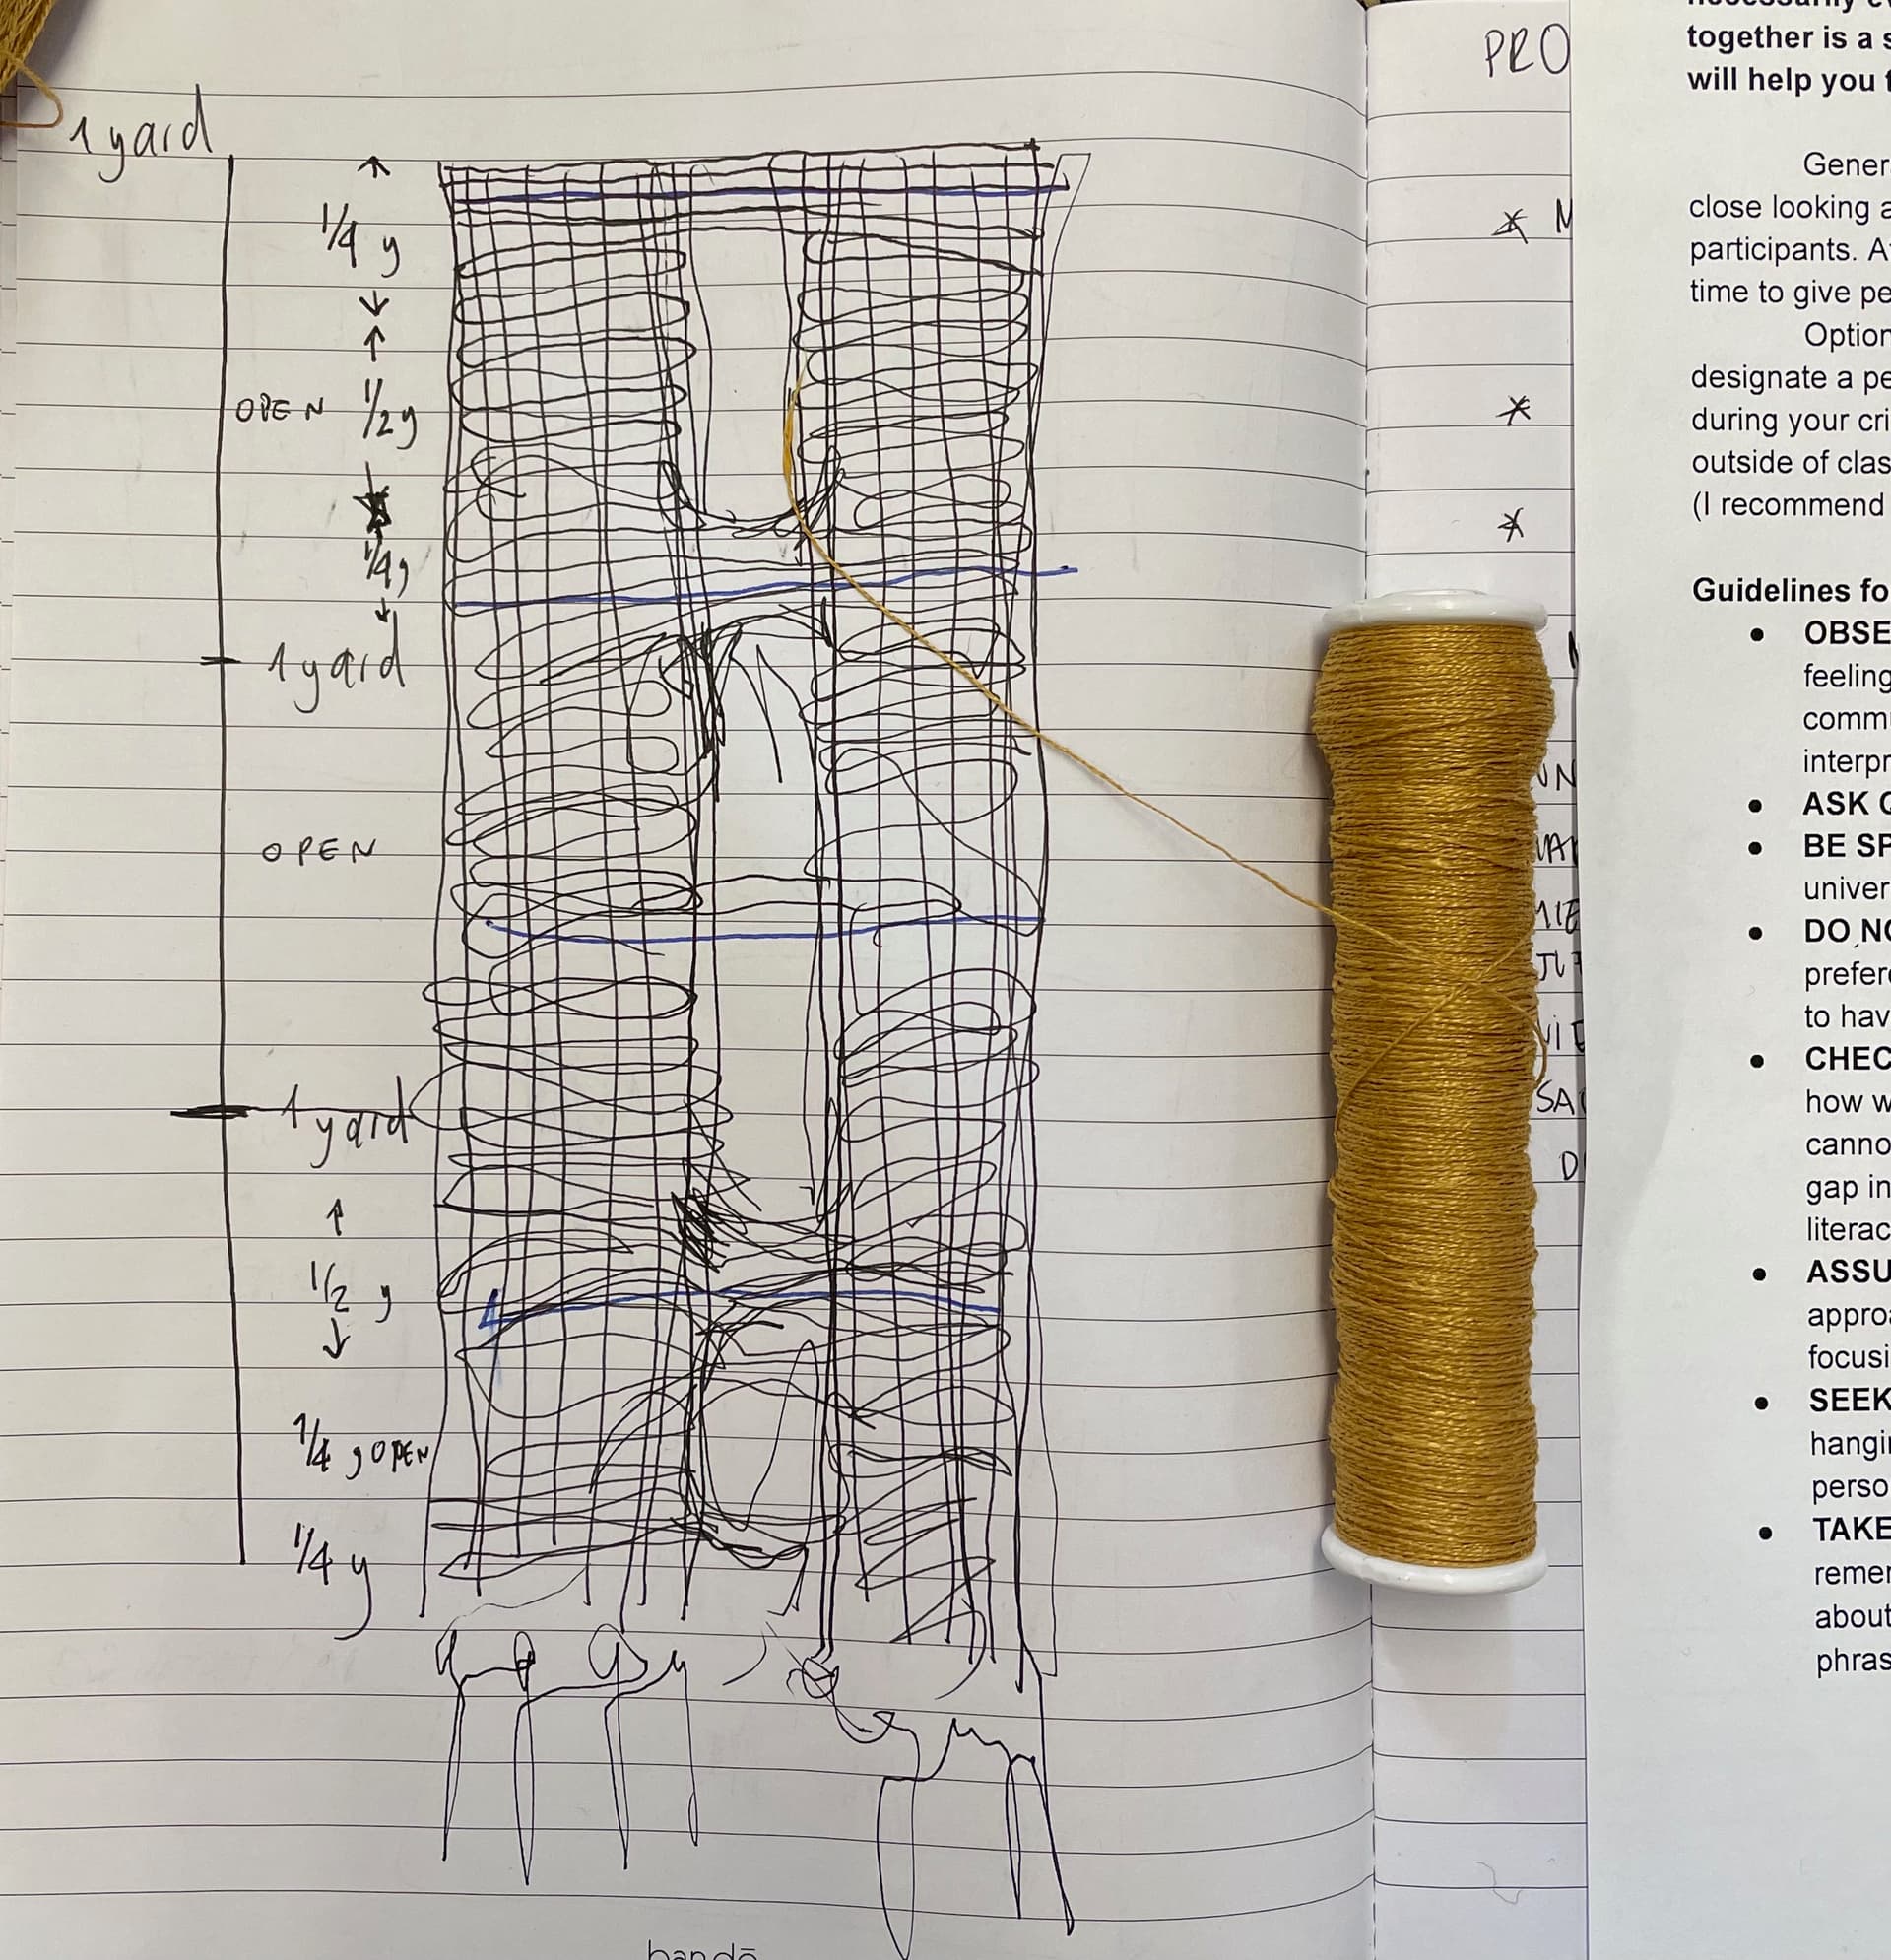 1 yard
1/4 y
OPEN 1/2 y
1/4 y
1 yard
OPEN
1 yard
1/2 y
1/4 y OPEN
1/4 y
bandō
PRO
together is a s
will help you t
Gener
close looking a
participants. A
time to give pe
Option
designate a pe
during your cri
outside of clas
(I recommend
Guidelines fo
• OBSE
feeling
comm
interpr
• ASK Q
• BE SP
univer
• DO NO
prefere
to hav
• CHEC
how w
canno
gap in
literac
• ASSU
approa
focusi
• SEEK
hangin
perso
• TAKE
remem
about
phras